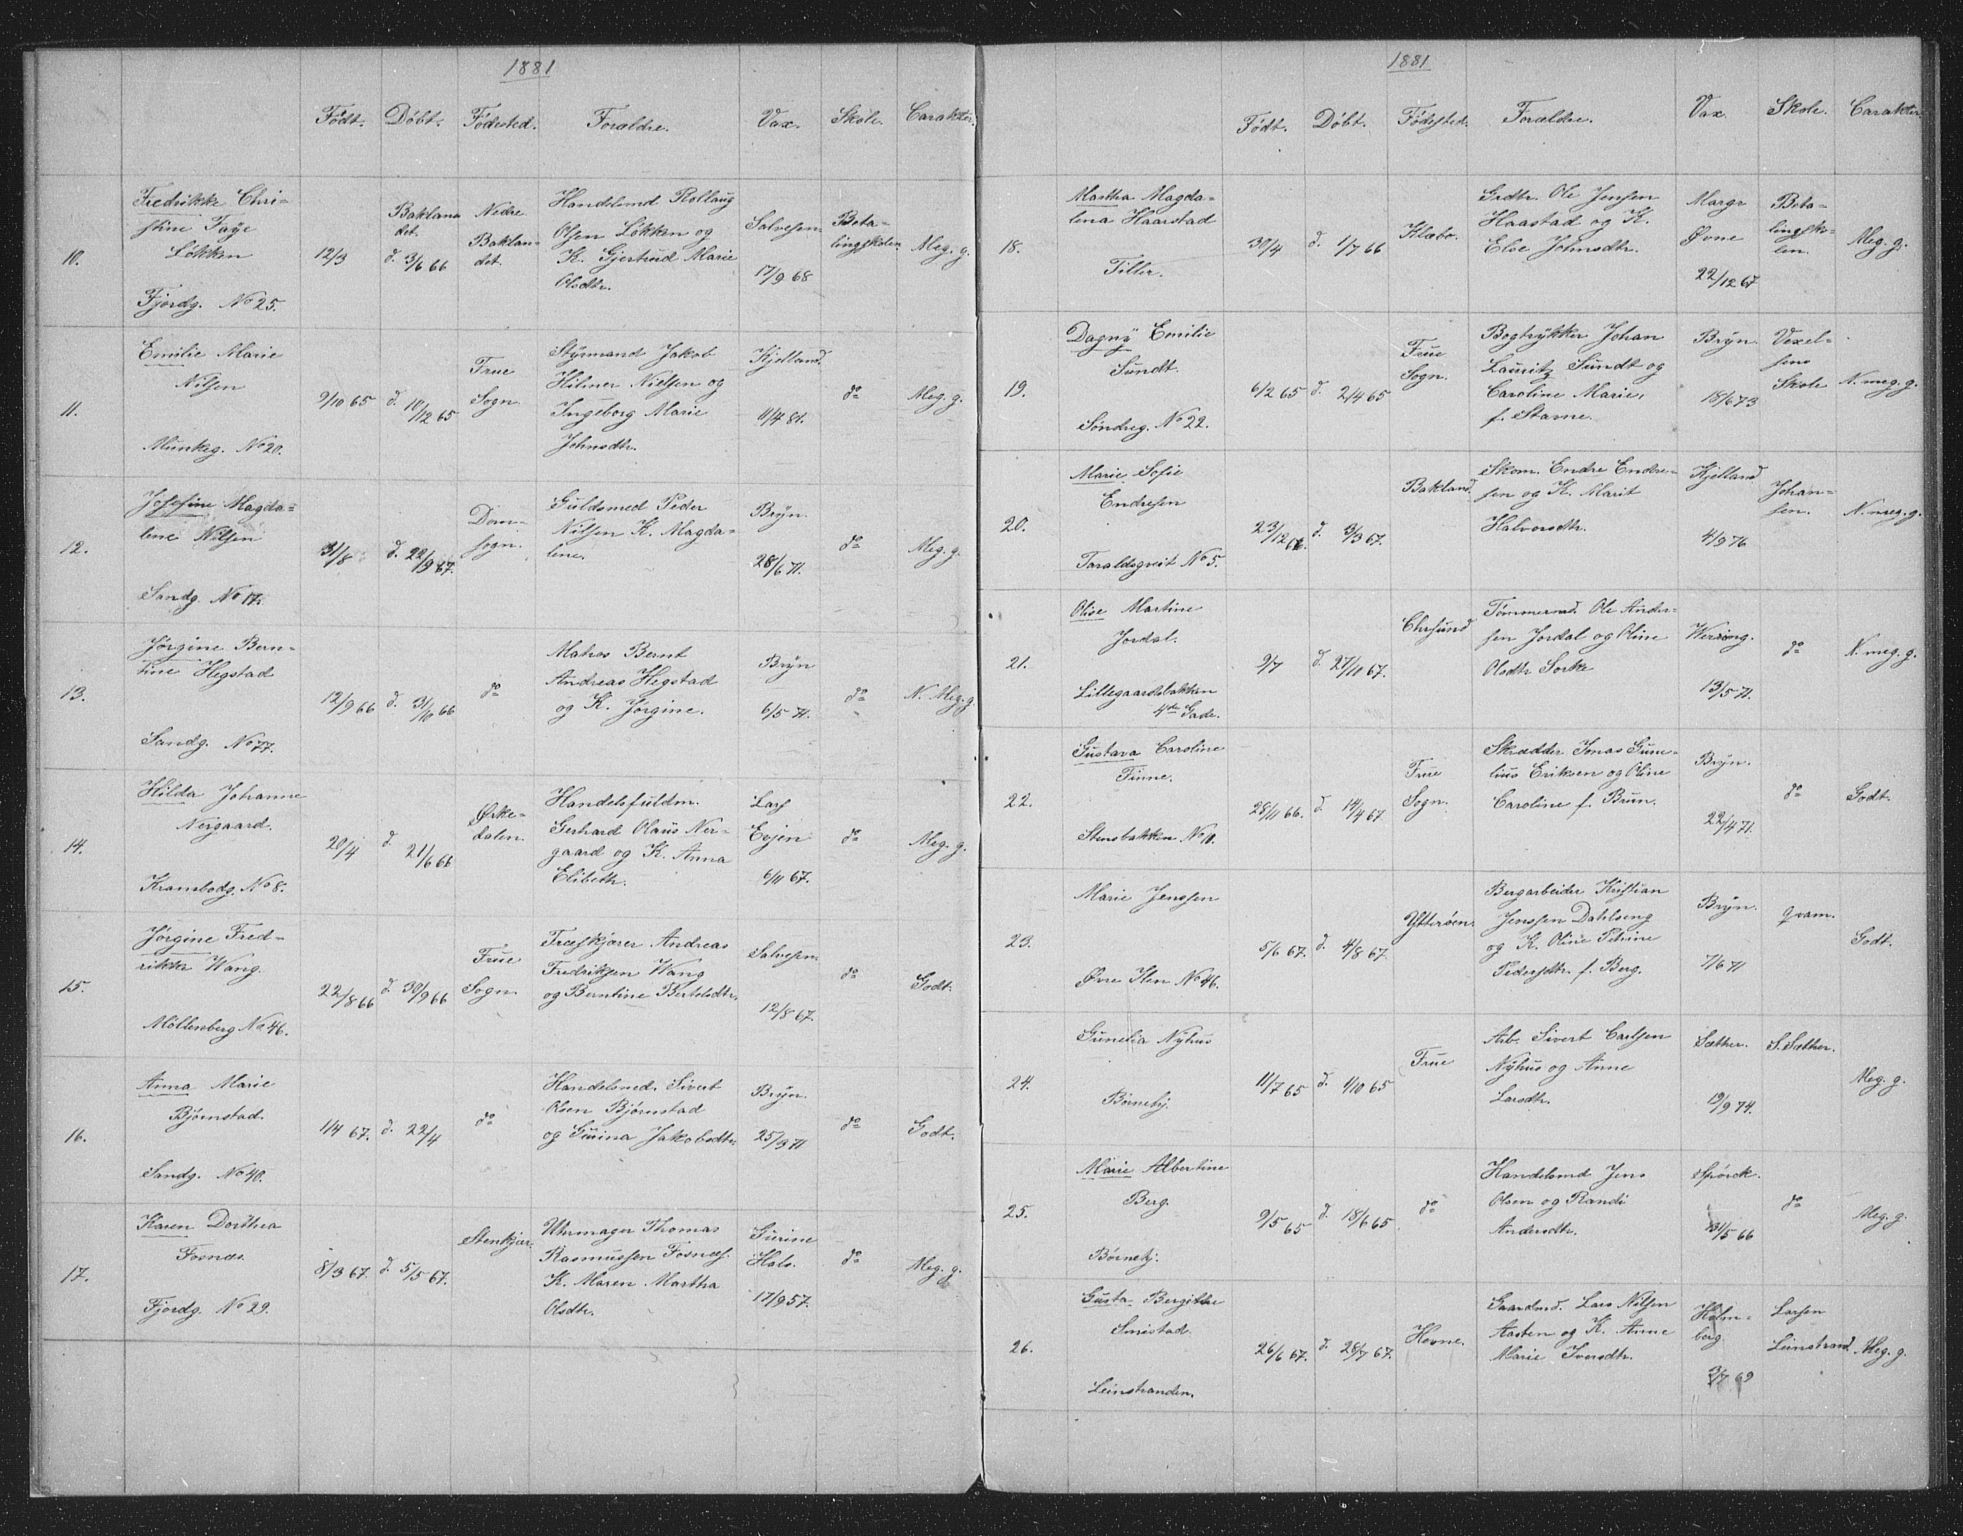 1881
Født. Døbt. Fødested. Forældre. Vax. Skole. Carakter.
10.
Fredrikke Chri-
stine Faye
Løkken
Fjordg. No 25.
12/3
Baklan
det.
d. 3/6 66
Nedre
Baklan-
det.
Handelsmd Rollaug
Olsen Løkken og
K. Gjertrud Marie
Olsdtr.
Salvesen
17/9 68
Beta-
lingsskolen
Meg. g.
11.
Emilie Marie
Nilsen
Munkeg. No 20.
9/10 65
d. 10/12 65
Frue
Sogn
Styrmand Jakob
Hilmer Nielsen og
Ingeborg Marie
Johnsdtr.
Kjelland.
11/4 81.
do
Meg. g.
12.
Josefine Magda-
lene Nilsen
Sandg. No 17.
31/8
d. 22/9 67.
Dom-
sogn.
Guldsmed Peder
Nilsen K. Magda-
lene.
Bryn.
28/6 71.
do
Meg. g.
13.
Jørgine Bern-
tine Hegstad
Sandg. No 77.
12/9 66
d. 31/10 66
do
Matros Bernt
Andreas Hegstad
og K. Jørgine.
Bryn
6/5 71.
do
N. Meg. g.
14.
Hilda Johanne
Nergaard.
Krambodg. No 8.
20/4
d. 21/6 66
Ørke-
dalen.
Handelsfuldm.
Gerhard Olaus Ner-
gaard og K. Anna
Elibeth.
Lars
Evjen
6/11 67.
do
Meg. g.
15.
Jørgine Fred-
rikke Wang.
Møllenberg No 46.
22/8 66
d. 30/9 66
Frue
Sogn.
Træskjærer Andreas
Fredriksen Wang
og Berntine Bertelsdtr.
Salvesen
12/8 67.
do
Godt.
16.
Anna Marie
Bjørnstad.
Sandg. No 40.
1/4 67.
d. 22/4
do
Handelsmd. Sivert
Olsen Bjørnstad
og Gurina Jakobsdtr.
Bryn.
25/9 71
do
Godt.
17.
Karen Dorthea
Fosnæs
Fjordg. No 29.
8/3 67.
d. 5/5 67.
Stenkjær.
Uhrmager Thomas
Rasmussen Fosnæs.
K. Maren Martha
Olsdtr.
Gurine
Hals.
17/9 57.
do
Meg. g.
1881
Født. Døbt. Fødested. Forældre. Vax. Skole. Carakter.
18.
Martha Magda-
lena Haarstad
Tiller.
30/4
d. 1/7 66
Klæbo.
Grdbr. Ole Jensen
Haastad og K.
Else Johnsdtr.
Margr
Øvne
22/12 67
Beta-
lingssko-
len.
Meg. g.
19.
Dagny Emilie
Sundt.
Søndreg. No 22.
6/2 65
d. 2/4 65
Frue
Sogn.
Bogtrykker Johan
Lauritz Sundt og
Caroline Marie,
f. Stavne.
Bryn.
18/6 73
Vexel-
sens
Skole
N. meg. g.
20.
Marie Sofie
Endresen
Taraldsgveit No 5.
23/12 66.
d. 3/3 67.
Bakland.
Skom. Endre Endre-
sen og K. Marit
Halvorsdtr.
Kjelland
4/9 76
Johan-
sen.
N. meg. g.
21.
Olise Martine
Jordal.
Lillegaardsbakken
4de Gade.
9/7
d. 27/10 67.
Chrsund
Tømmermd. Ole Ander-
sen Jordal og Oline
Olsdtr Sorke
Wessing.
13/5 71.
do
N. meg. g.
22.
Gustava Caroline
Finne.
Stensbakken No 10.
28/11 66.
d. 14/4 67
Frue
Sogn.
Skrædder Jonas Gune-
lius Eriksen og Oline
Caroline f. Brun.
Bryn.
22/4 71.
do
Godt.
23.
Marie Jenssen
Øvre Ilen No 46.
5/6 67.
d. 4/8 67.
Ytterøen.
Bergarbeider Kristian
Jenssen Dahlseng
og K. Oline Petrine
Pedersdtr. f. Berg.
Bryn.
7/6 71
Qvam.
Godt.
24.
Gunelia Nyhus
Børnehj.
11/7 65
d. 1/10 65
Frue
Arb. Sivert Carlsen
Nyhus og Anne
Larsdtr.
Sæther.
19/9 74.
S. Sæther.
Meg. g.
25.
Marie Albertine
Berg.
Børnehj.
9/5 65
d. 18/6 65
do
Handelsmd Jens
Olsen og Randi
Andersdtr.
Spørck.
31/5 66
do
Meg. g.
26.
Gusta Bergitte
Smistad.
Leinstranden.
26/6 67.
d. 28/7 67.
Hevne.
Gaardmd. Lars Nilsen
Aasten og K. Anne
Marie Iversdtr.
Holm-
berg
3/7 69
Larsen
Leinstrand.
Meg. g.